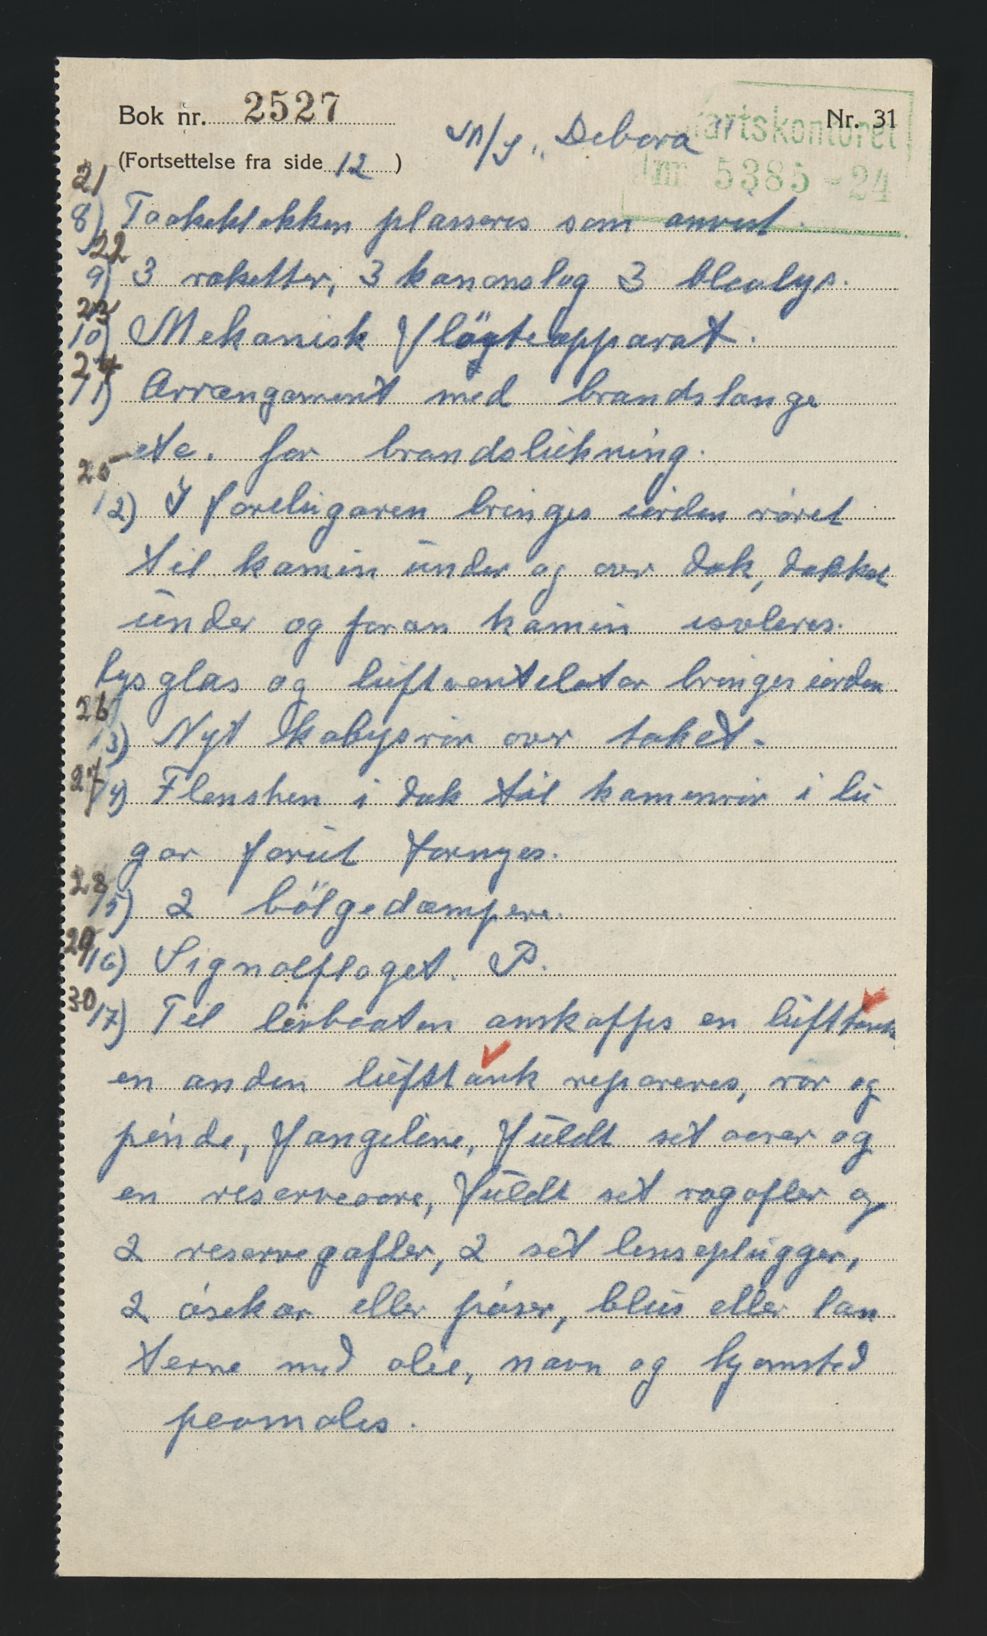 Bok nr. 2527
M/S „Debora" Nr. 31
artskontoret
nr 5385 - 24
(Fortsettelse fra side 12 )
21
8) Taakeklokken plasseres som anvist.
22
9) 3 raketter, 3 kanonslag 3 blaalys.
23
10) Mekanisk fløgteapparat.
24
11) Arrangement med brandslange
etc. for brandslukning.
25
12) I forelugaren bringes iorden røret
til kamin under og over dæk, dækket
under og foran kamin isoleres.
Lysglas og luftventilator bringes iorden
26
13) Nyt kabysrør over taket.
27
14) Flenshen i dæk til kaminrør i lu
gar forut fornyes.
28
15) 2 bölgedæmpere.
29
16) Signalflaget. P.
30
17) Til livbaaten anskaffes en lufttank
en anden lufttank repareres, ror og
pinde, fangeline, fuldt set aarer og
en reserveaare, fuldt set rogafler og
2 reservegafler, 2 set lenseplugger,
2 ösekar eller pöser, blus eller lan
terne med olie, navn og hjemsted
paamales.